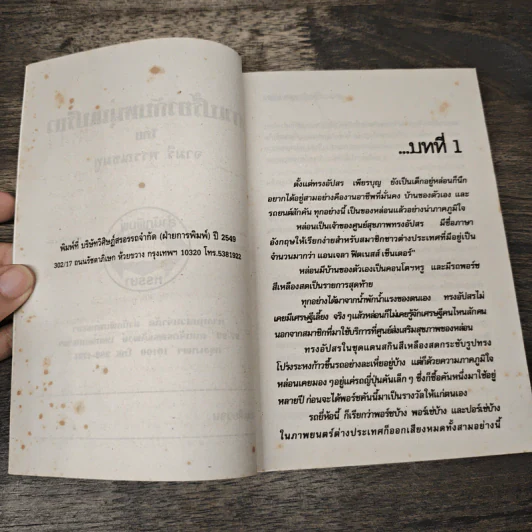 พิมพ์ที่ บริษัทวิศิษฎ์สรอรรถจำกัด (ฝ่ายการพิมพ์) ปี 2549
302/17 ถนนรัชดาภิเษก ห้วยขวาง กรุงเทพฯ 10320 โทร.5381922
...บทที่ 1
ตั้งแต่ทรงอัปสร เพียรบุญ ยังเป็นเด็กอยู่หล่อนก็นึก
อยากได้อยู่สามอย่างคืองานอาชีพที่มั่นคง บ้านของตัวเอง และ
รถยนต์สักคัน ทุกอย่างนี้ เป็นของหล่อนแล้วอย่างน่าภาคภูมิใจ
หล่อนเป็นเจ้าของศูนย์สุขภาพทรงอัปสร มีชื่อภาษา
อังกฤษให้เรียกง่ายสำหรับสมาชิกชาวต่างประเทศที่มีอยู่เป็น
จำนวนมากว่า แอนเจลา ฟิตเนสส์ เซ็นเตอร์"
หล่อนมีบ้านของตัวเองเป็นคอนโดฯหรู และมีรถพอร์ช
สีเหลืองสดเป็นรายการสุดท้าย
ทุกอย่างได้มาจากน้ำพักน้ำแรงของตนเอง ทรงอัปสรไม่
เคยมีเศรษฐีเลี้ยง จริง ๆ แล้วหล่อนก็ไม่เคยรู้จักเศรษฐีคนไหนสักคน
นอกจากสมาชิกที่มาใช้บริการที่ศูนย์ส่งเสริมสุขภาพของหล่อน
ทรงอัปสรในชุดแดนสกินสีเหลืองสดกระชับรูปทรง
โปร่งระหงก้าวขึ้นรถอย่างละเหี่ยอยู่บ้าง แต่ก็ด้วยความภาคภูมิใจ
หล่อนเคยมอง ๆ อยู่แต่รถญี่ปุ่นคันเล็ก ๆ ซึ่งก็ซื้อคันหนึ่งมาใช้อยู่
หลายปี ก่อนจะได้พอร์ชคันนี้มาเป็นรางวัลให้แก่ตนเอง
รถยี่ห้อนี้ ก็เรียกว่าพอร์ชบ้าง พอร์เช่บ้าง และปอร์เช่บ้าง
ในภาพยนตร์ต่างประเทศก็ออกเสียงหมดทั้งสามอย่างนี้